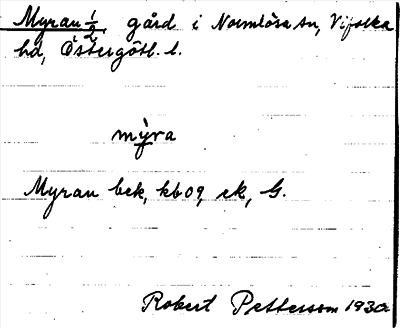 Myran ½, gård i Normlösa sn, Vifolka
hd, Östergötl. l.
mỳra
Myran bek, kb 09, ek, G.
Robert Pettersson 1930